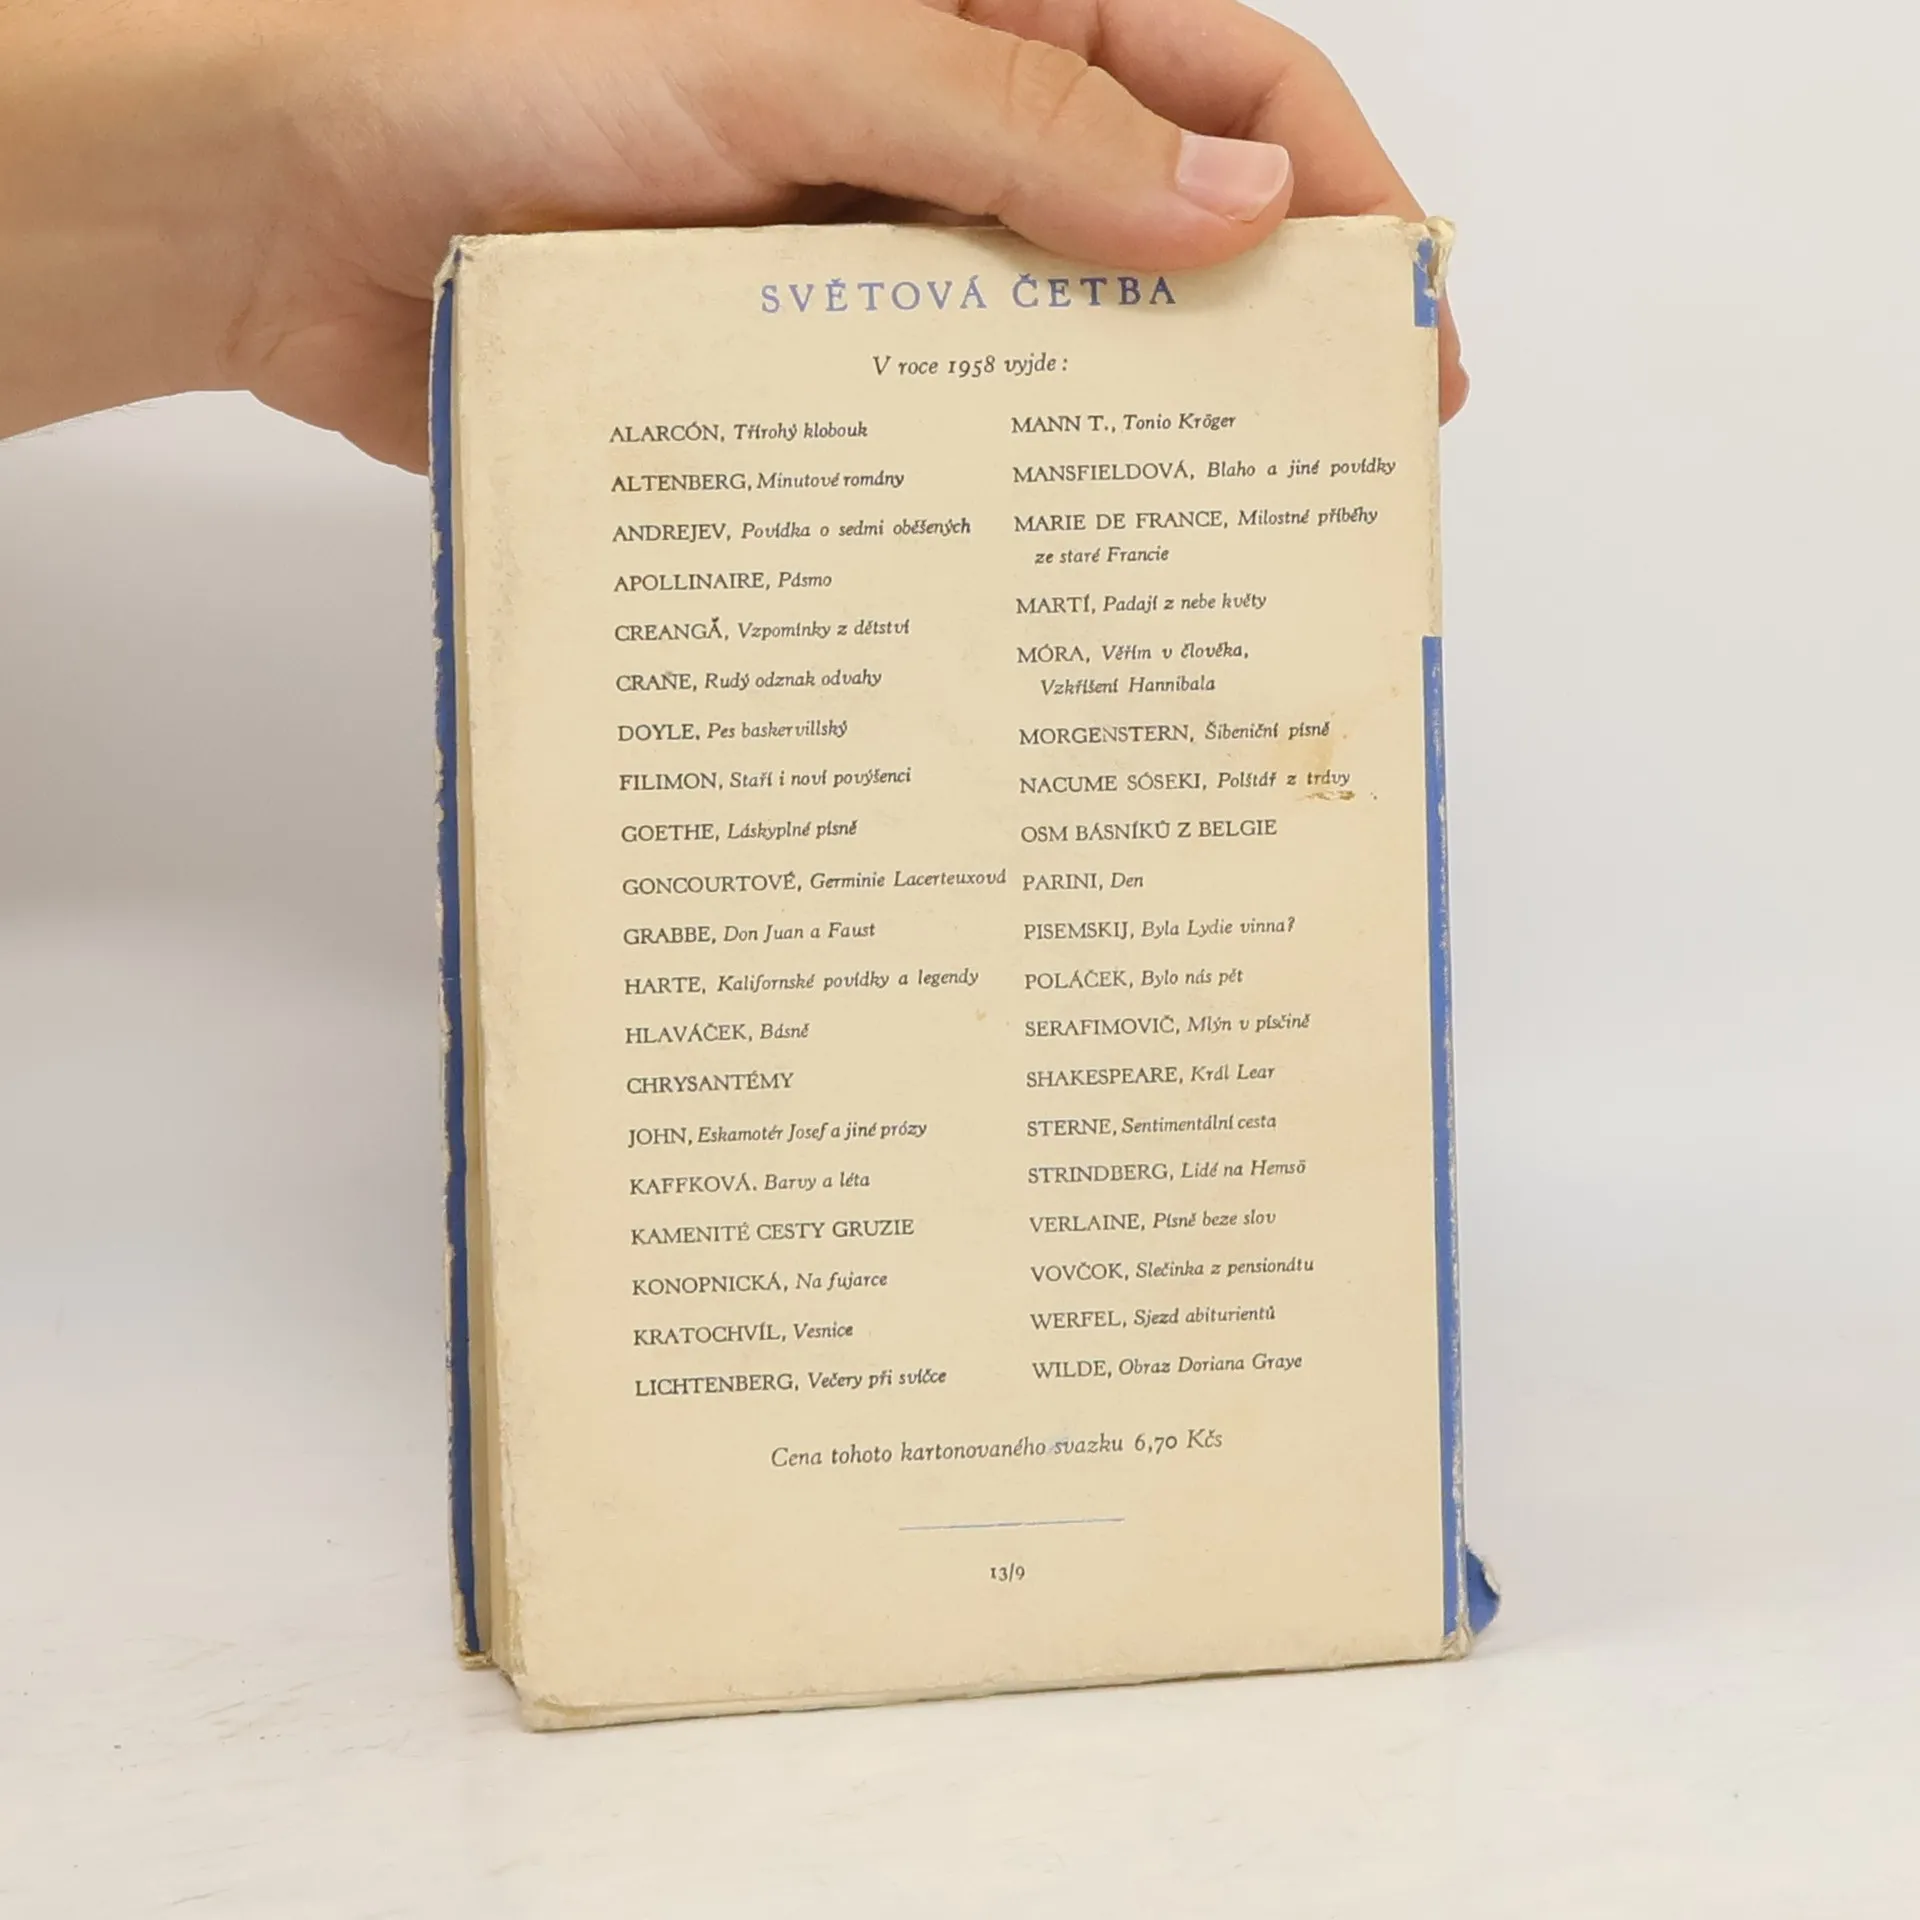 SVĚTOVÁ ČETBA
V roce 1958 vyjde:
ALARCÓN, Třírohý klobouk
ALTENBERG, Minutové romány
ANDREJEV, Povídka o sedmi oběšených
APOLLINAIRE, Pásmo
CREANGĂ, Vzpomínky z dětství
CRANE, Rudý odznak odvahy
DOYLE, Pes baskervillský
FILIMON, Staří i noví povýšenci
GOETHE, Láskyplné písně
GONCOURTOVÉ, Germinie Lacerteuxová
GRABBE, Don Juan a Faust
HARTE, Kalifornské povídky a legendy
HLAVÁČEK, Básně
CHRYSANTÉMY
JOHN, Eskamotér Josef a jiné prózy
KAFFKOVÁ. Barvy a léta
KAMENITÉ CESTY GRUZIE
KONOPNICKÁ, Na fujarce
KRATOCHVÍL, Vesnice
LICHTENBERG, Večery při svíčce
MANN T., Tonio Kröger
MANSFIELDOVÁ, Blaho a jiné povídky
MARIE DE FRANCE, Milostné příběhy
ze staré Francie
MARTÍ, Padají z nebe květy
MÓRA, Věřím v člověka,
Vzkříšení Hannibala
MORGENSTERN, Šibeniční písně
NACUME SÓSEKI, Polštář z trávy
OSM BÁSNÍKŮ Z BELGIE
PARINI, Den
PISEMSKIJ, Byla Lydie vinna?
POLÁČEK, Bylo nás pět
SERAFIMOVIČ, Mlýn v písčině
SHAKESPEARE, Král Lear
STERNE, Sentimentální cesta
STRINDBERG, Lidé na Hemsö
VERLAINE, Písně beze slov
VOVČOK, Slečinka z pensionátu
WERFEL, Sjezd abiturientů
WILDE, Obraz Doriana Graye
Cena tohoto kartonovaného svazku 6,70 Kčs
13/9